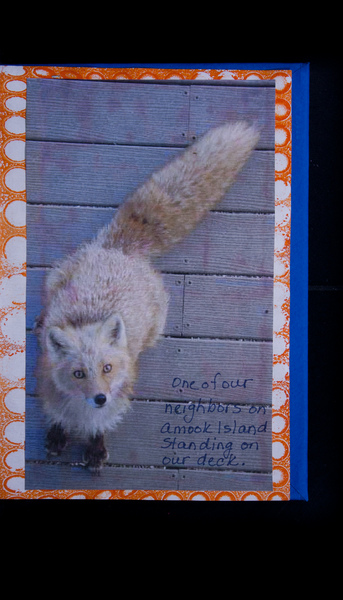 One of our
neighbors on
amook Island
standing on
our deck.